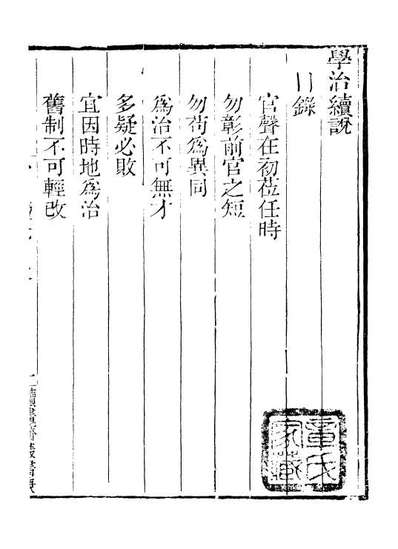 學治續說
目錄
官聲在初蒞任時
勿彰前官之短
勿苟為異同
為治不可無才
多疑必敗
宜因時地為治
舊制不可輕改
章氏
家藏